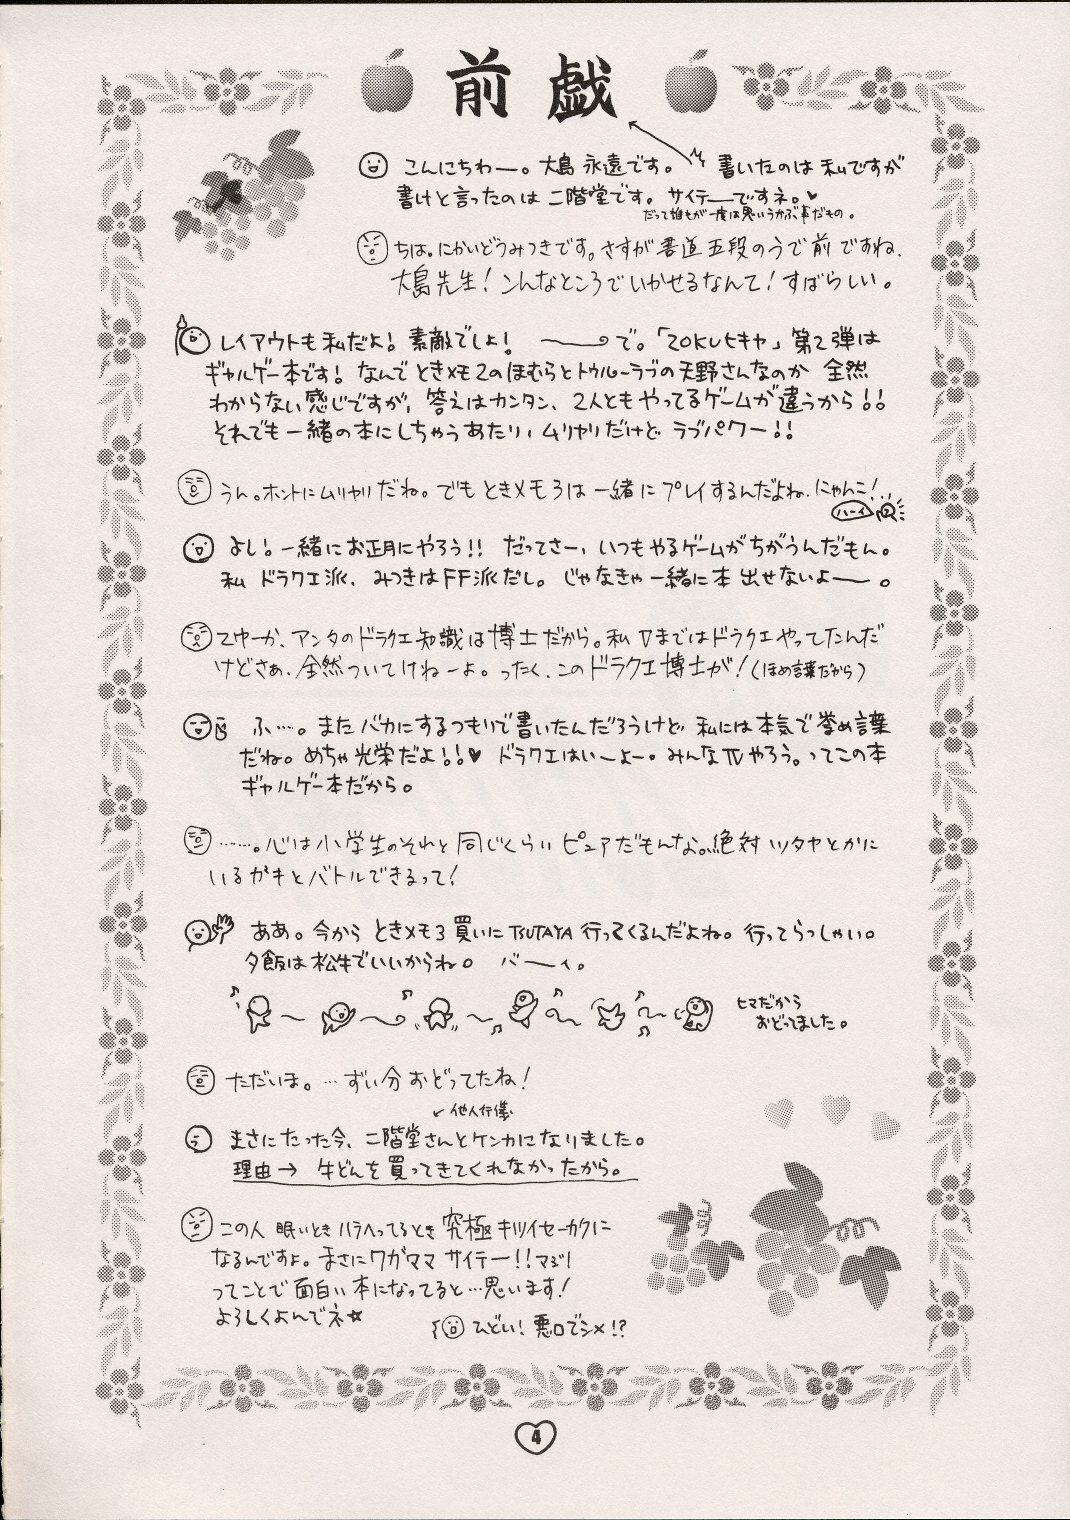 前戯
こんにちわー。大島 永遠です。 書いたのは 私ですが
書けと言ったのは 二階堂です。サイテーですネ。♥
だって誰もが一度は思いうかぶ事だもの。
ちは。にかいどうみつきです。さすが書道五段のうで前ですね、
大島先生!こんなところでいかせるなんて!すばらしい。
レイアウトも私だよ!素敵でしょ! ――で。「ZOKUヒキヤ」第2弾は
ギャルゲー本です!なんで ときメモ2のほむらとトゥルーラブの天野さんなのか 全然
わからない感じですが、答えはカンタン、2人ともやってるゲームが違うから!!
それでも一緒の本にしちゃうあたり、ムリヤリだけど ラブパワー!!
うん。ホントにムリヤリだね。でも ときメモ3は 一緒に プレイするんだよね、にゃんこ!
ハーイ
よし!一緒にお正月にやろう!! だってさー、いつもやるゲームがちがうんだもん。
私 ドラクエ派、みつきはFF派だし。じゃなきゃ一緒に本 出せないよー。
てゆーか、アンタのドラクエ知識は博士だから。私 Vまではドラクエやってたんだ
けどさぁ、全然ついてけねーよ。ったく、このドラクエ博士が!(ほめ言葉だから)
ふ…。またバカにするつもりで書いたんだろうけど 私には本気で誉め言葉
だね。めちゃ光栄だよ!!♥ ドラクエはいーよー。みんなⅣやろう。ってこの本
ギャルゲー本だから。
……。心は小学生のそれと同じくらい ピュアだもんな。絶対 ツタヤとかに
いるガキとバトルできるって!
ああ。今から ときメモ3買いに TSUTAYA 行ってくるんだよね。行ってらっしゃい。
夕飯は 松牛でいいからね。 バーイ。
ヒマだから
おどってました。
ただいま。…ずい分おどってたね!
他人行儀
まさにたった今、二階堂さんとケンカになりました。
理由→ 牛どんを買ってきてくれなかったから。
この人 眠いとき ハラへってるとき 究極キツイセーカクに
なるんですよ。まさにワガママ サイテー!!マジ!
ってことで面白い本になってると…思います!
よろしくよんでネ☆
ひどい!悪口でシメ!?
4